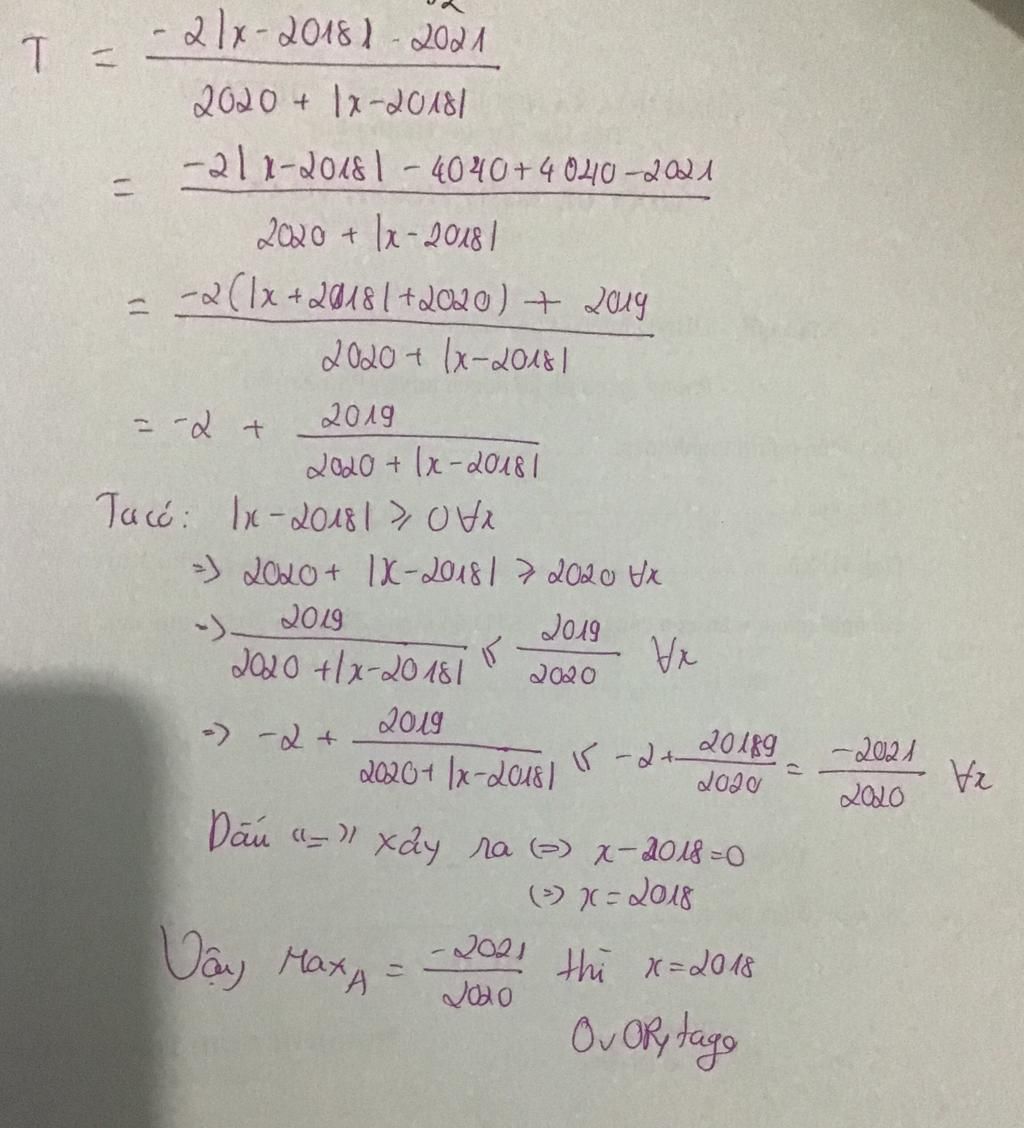 T = \frac{-2|x-2018|-2021}{2020+|x-2018|}
= \frac{-2|x-2018|-4040+4040-2021}{2020+|x-2018|}
= \frac{-2(|x+2018|+2020)+2019}{2020+|x-2018|}
= -2 + \frac{2019}{2020+|x-2018|}
Ta có: |x-2018| ⩾ 0 ∀x
=> 2020+ |x-2018| ⩾ 2020 ∀x
=> \frac{2019}{2020+|x-2018|} ⩽ \frac{2019}{2020} ∀x
=> -2 + \frac{2019}{2020+|x-2018|} ⩽ -2+ \frac{20189}{2020} = \frac{-2021}{2020} ∀x
Dấu "=" xảy ra <=> x-2018=0
<=> x=2018
Vậy Max_A = \frac{-2021}{2020} thì x=2018